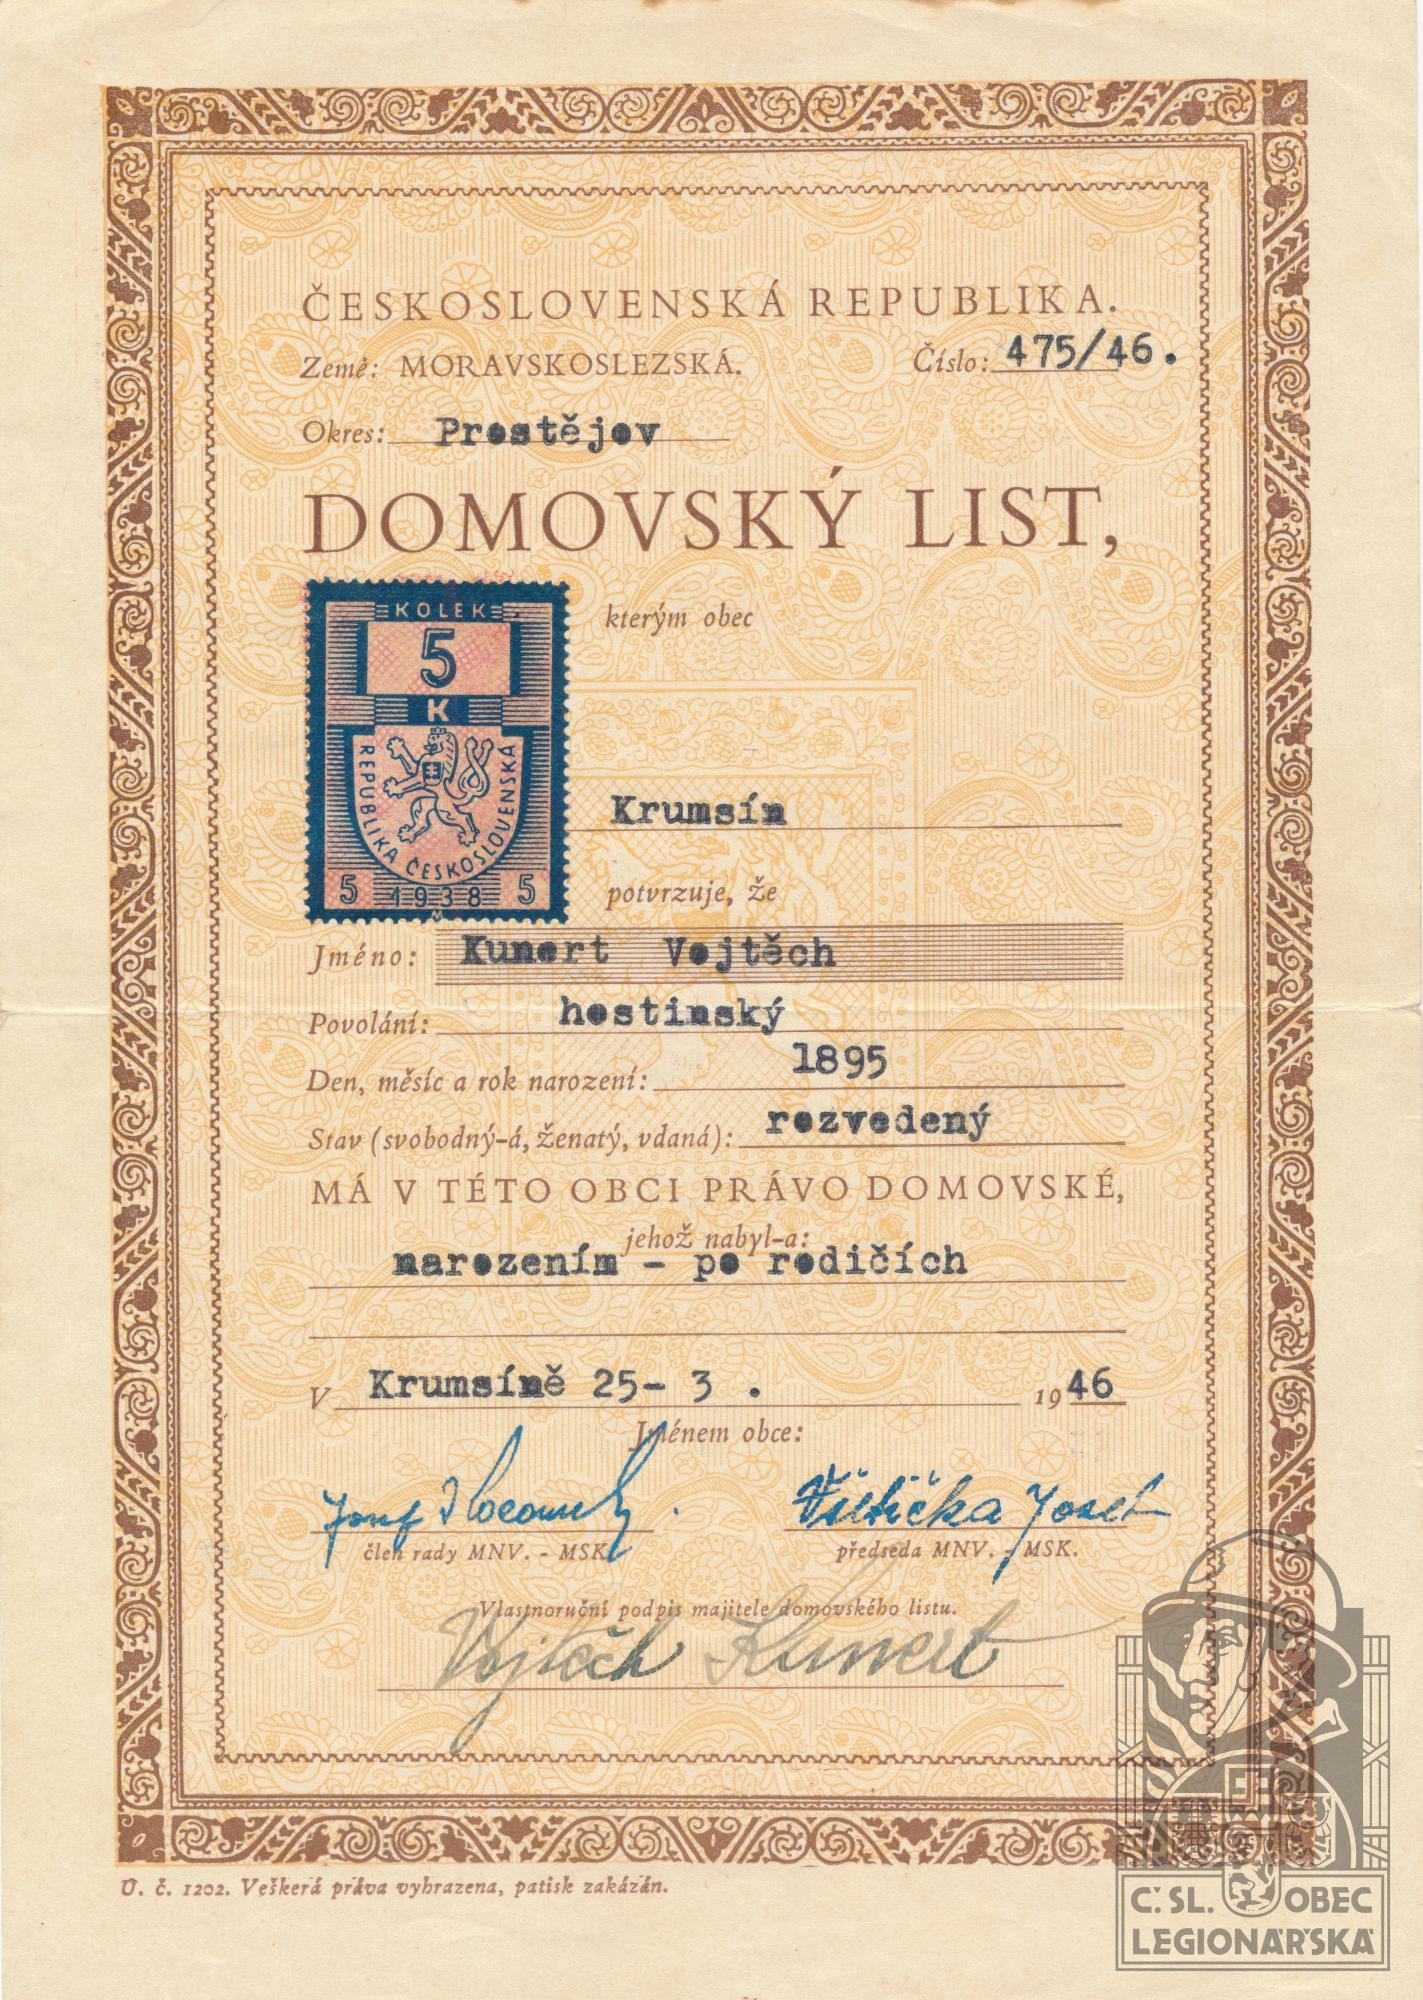 ČESKOSLOVENSKÁ REPUBLIKA.
Země: MORAVSKOSLEZSKÁ. Číslo: 475/46.
Okres: Prostějov
DOMOVSKÝ LIST,
KOLEK
5
K
REPUBLIKA ČESKOSLOVENSKÁ
5 1938 5
kterým obec
Krumsín
potvrzuje, že
Jméno: Kunert Vojtěch
Povolání: hostinský
Den, měsíc a rok narození: 1895
Stav (svobodný-á, ženatý, vdaná): rozvedený
MÁ V TÉTO OBCI PRÁVO DOMOVSKÉ,
jehož nabyl-a:
narozením - po rodičích
V Krumsíně 25- 3 . 1946
Jménem obce:
Josef
Všetička Josef
člen rady MNV. - MSK.
předseda MNV. - MSK.
Vlastnoruční podpis majitele domovského listu.
Vojtěch Kunert
U. č. 1202. Veškerá práva vyhrazena, patisk zakázán.
Č. SL. OBEC
LEGIONÁŘSKÁ